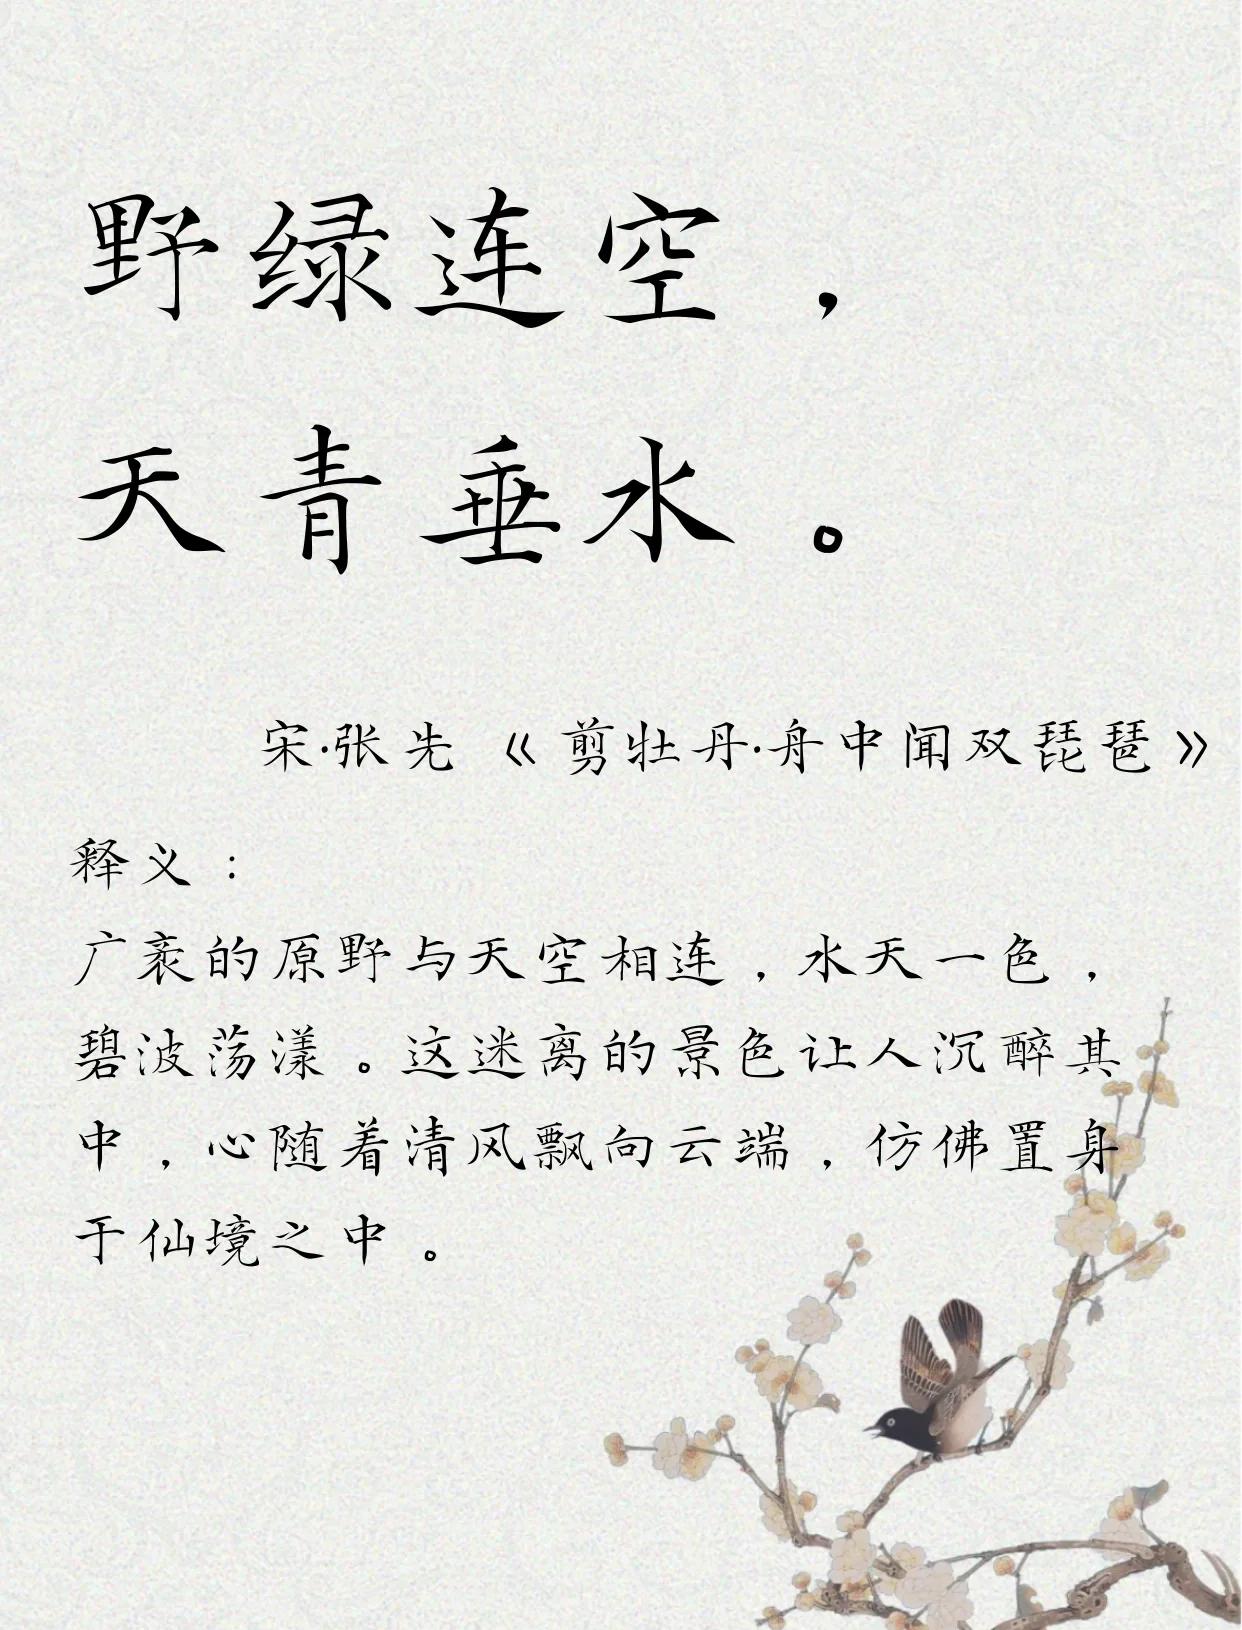 野绿连空，
天青垂水。
宋·张先《剪牡丹·舟中闻双琵琶》
释义：
广袤的原野与天空相连，水天一色，
碧波荡漾。这迷离的景色让人沉醉其
中，心随着清风飘向云端，仿佛置身
于仙境之中。